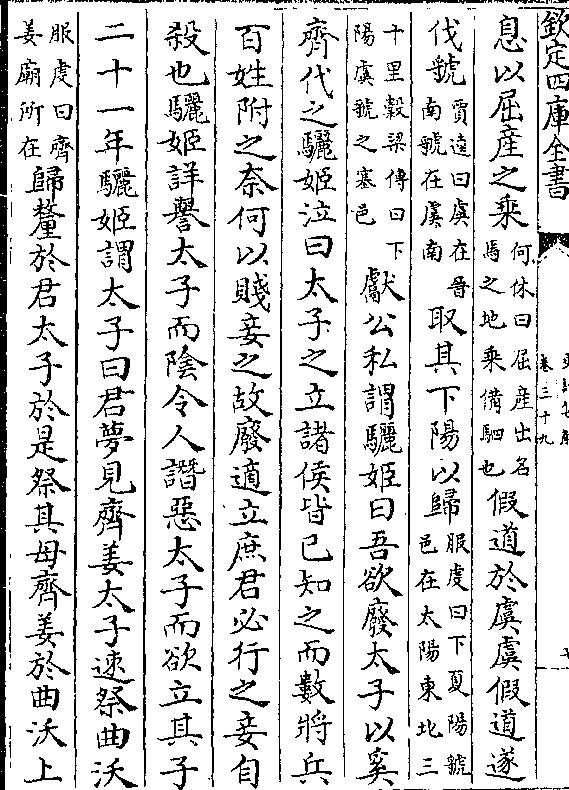 欽定四庫全書
卷三十九
息以屈産之乗何休曰屈産出名馬之地乗備駟也假道於虞虞假道遂
伐虢賈逵曰虞在晉南虢在虞南取其下陽以歸服虔曰下夏陽虢邑在太陽東北三
十里穀梁傳曰下陽虞虢之塞邑獻公私謂驪姬曰吾欲廢太子以奚
齊代之驪姬泣曰太子之立諸侯皆已知之而數將兵
百姓附之奈何以賤妾之故廢適立庶君必行之妾自
殺也驪姬詳譽太子而陰令人譖惡太子而欲立其子
二十一年驪姬謂太子曰君夢見齊姜太子速祭曲沃
服虔曰齊姜廟所在歸釐於君太子於是祭其母齊姜於曲沃上